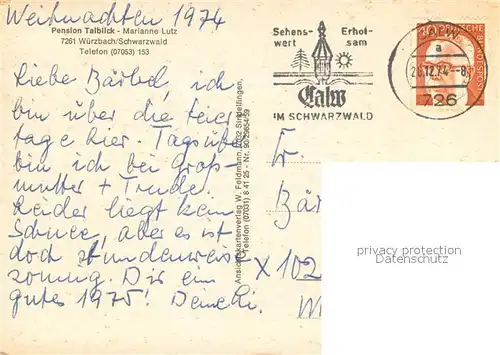 Weihnachten 1974
Pension Talblick - Marianne Lutz
7261 Würzbach/Schwarzwald
Telefon (07053) 153
Liebe Bärbel, ich
bin über die Feier
tage hier. Tagsüber
bin ich bei Groß-
mutter + Trude.
Leider liegt kein
Schnee, aber es ist
doch stundenweis
sonnig. Dir ein
gutes 1975!
Ansichtskartenverlag W. Feldmann, 7032 Sindelfingen,
Telefon (07031) 8 41 25 - Nr. 90
Sehens-
wert
Erhol-
sam
Calw
IM SCHWARZWALD
CALW
a
26.12.74.--8
726
DEUTSCHE BUNDESPOST
Fr.
Bär
x 102
privacy protection
Datenschutz